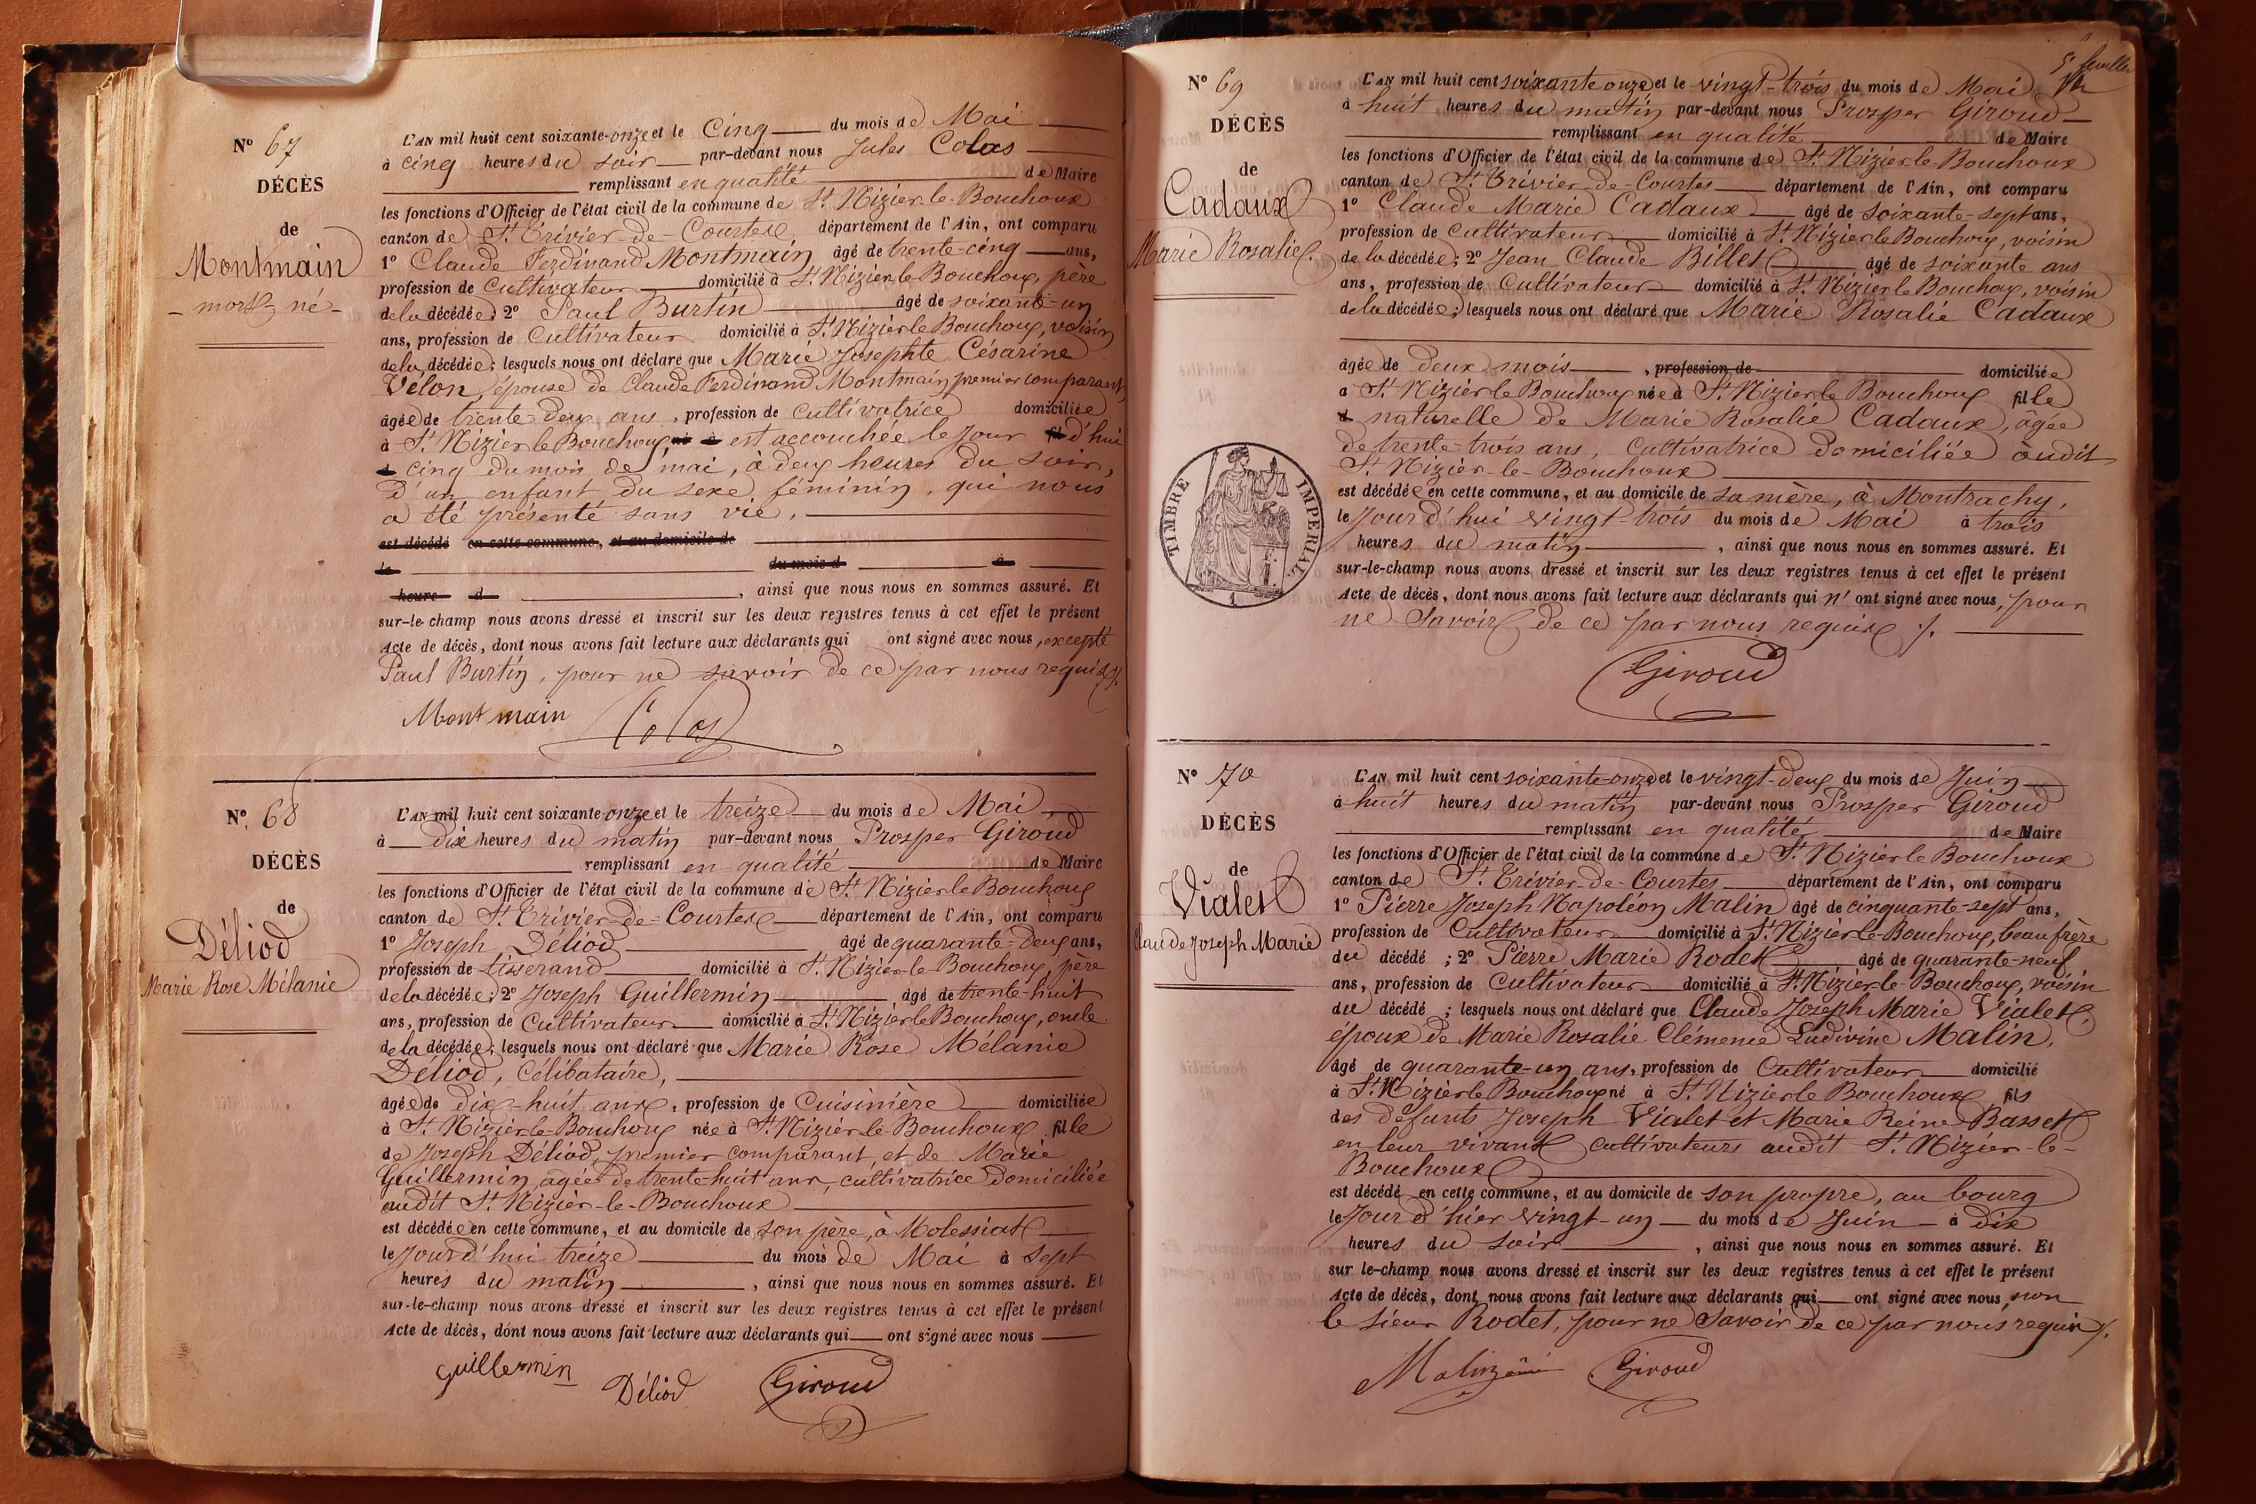 Nº 67
DÉCÈS
de
Montmain
- mort-né -
L'AN mil huit cent soixante-onze et le Cinq du mois de Mai
à cinq heures du soir par-devant nous Jules Colas
remplissant en qualité de Maire
les fonctions d'Officier de l'état civil de la commune de St Nizier-le-Bouchoux
canton de St Trivier-de-Courtes département de l'Ain, ont comparu
1º Claude Ferdinand Montmain âgé de trente-cinq ans,
profession de Cultivateur domicilié à St Nizier le Bouchoux, père
de la décédée; 2º Paul Burtin âgé de soixante-un
ans, profession de Cultivateur domicilié à St Nizier le Bouchoux, voisin
de la décédée; lesquels nous ont déclaré que Marie Josephte Césarine
Vélon, épouse de Claude Ferdinand Montmain premier comparant,
âgée de trente-deux ans, profession de Cultivatrice domiciliée
à St Nizier le Bouchoux né à est accouchée le jour fil d'hui
d cinq du mois de mai, à deux heures du soir,
d'un enfant du sexe féminin, qui nous
a été présenté sans vie,
est décédé en cette commune, et au domicile de
le du mois d à
heure d , ainsi que nous nous en sommes assuré. Et
sur-le-champ nous avons dressé et inscrit sur les deux registres tenus à cet effet le présent
Acte de décès, dont nous avons fait lecture aux déclarants qui ont signé avec nous, excepté
Paul Burtin, pour ne savoir de ce par nous requis ./.
Montmain Colas
Nº 68
DÉCÈS
de
Déliod
Marie Rose Mélanie
L'AN mil huit cent soixante-onze et le treize du mois de Mai
à dix heures du matin par-devant nous Prosper Giroud
remplissant en qualité de Maire
les fonctions d'Officier de l'état civil de la commune de St Nizier le Bouchoux
canton de St Trivier-de-Courtes département de l'Ain, ont comparu
1º Joseph Déliod âgé de quarante-deux ans,
profession de tisserand domicilié à St Nizier-le-Bouchoux, père
de la décédée; 2º Joseph Guillermin âgé de trente-huit
ans, profession de Cultivateur domicilié à St Nizier le Bouchoux, oncle
de la décédée; lesquels nous ont déclaré que Marie Rose Mélanie
Déliod, Célibataire,
âgée de dix-huit ans, profession de Cuisinière domiciliée
à St Nizier-le-Bouchoux née à St Nizier-le-Bouchoux fille
de Joseph Déliod, premier comparant, et de Marie
Guillermin, agée de trente-huit ans, cultivatrice domiciliée
audit St Nizier-le-Bouchoux
est décédée en cette commune, et au domicile de son père, à Molessiat
le jour d'hui treize du mois de Mai à sept
heures du matin , ainsi que nous nous en sommes assuré. Et
sur-le-champ nous avons dressé et inscrit sur les deux registres tenus à cet effet le présent
Acte de décès, dont nous avons fait lecture aux déclarants qui ont signé avec nous
Guillermin Déliod Giroud
5e feuillet
Nº 69
DÉCÈS
de
Cadaux
Marie Rosalie.
TIMBRE IMPERIAL
1
L'AN mil huit cent soixante onze et le vingt-trois du mois de Mai
à huit heures du matin par-devant nous Prosper Giroud
remplissant en qualité de Maire
les fonctions d'Officier de l'état civil de la commune de St Nizier-le-Bouchoux
canton de St Trivier-de-Courtes département de l'Ain, ont comparu
1º Claude Marie Cadaux âgé de soixante-sept ans,
profession de Cultivateur domicilié à St Nizier le Bouchoux, voisin
de la décédée; 2º Jean Claude Billet âgé de soixante ans
ans, profession de Cultivateur domicilié à St Nizier le Bouchoux, voisin
de la décédée; lesquels nous ont déclaré que Marie Rosalie Cadaux
âgée de deux mois , profession de domiciliée
à St Nizier le Bouchoux née à St Nizier le Bouchoux fille
d naturelle de Marie Rosalie Cadaux, âgée
de trente-trois ans, Cultivatrice domiciliée audit
St Nizier-le-Bouchoux
est décédée en cette commune, et au domicile de sa mère, à Montrachy,
le jour d'hui vingt-trois du mois de Mai à trois
heures du matin , ainsi que nous nous en sommes assuré. Et
sur-le-champ nous avons dressé et inscrit sur les deux registres tenus à cet effet le présent
Acte de décès, dont nous avons fait lecture aux déclarants qui n'ont signé avec nous, pour
ne savoir de ce par nous requis ./.
Giroud
Nº 70
DÉCÈS
de
Vialet
Claude Joseph Marie
L'AN mil huit cent soixante-onze et le vingt-deux du mois de Juin
à huit heures du matin par-devant nous Prosper Giroud
remplissant en qualité de Maire
les fonctions d'Officier de l'état civil de la commune de St Nizier le Bouchoux
canton de St Trivier-de-Courtes département de l'Ain, ont comparu
1º Pierre Joseph Napoléon Malin âgé de cinquante-sept ans,
profession de Cultivateur domicilié à St Nizier-le-Bouchoux, beau frère
du décédé; 2º Pierre Marie Rodet âgé de quarante-neuf
ans, profession de Cultivateur domicilié à St Nizier-le-Bouchoux, voisin
du décédé; lesquels nous ont déclaré que Claude Joseph Marie Vialet,
époux de Marie Rosalie Clémence Ludivine Malin,
âgé de quarante-un ans, profession de Cultivateur domicilié
à St Nizier le Bouchoux né à St Nizier le Bouchoux fils
des défunts Joseph Vialet et Marie Reine Basset
en leur vivant cultivateurs audit St Nizier-le-
Bouchoux
est décédé en cette commune, et au domicile de son propre, au bourg
le jour d'hier vingt-un du mois de Juin à dix
heures du soir , ainsi que nous nous en sommes assuré. Et
sur le-champ nous avons dressé et inscrit sur les deux registres tenus à cet effet le présent
Acte de décès, dont nous avons fait lecture aux déclarants qui ont signé avec nous, non
le sieur Rodet, pour ne savoir de ce par nous requis ./.
Giroud